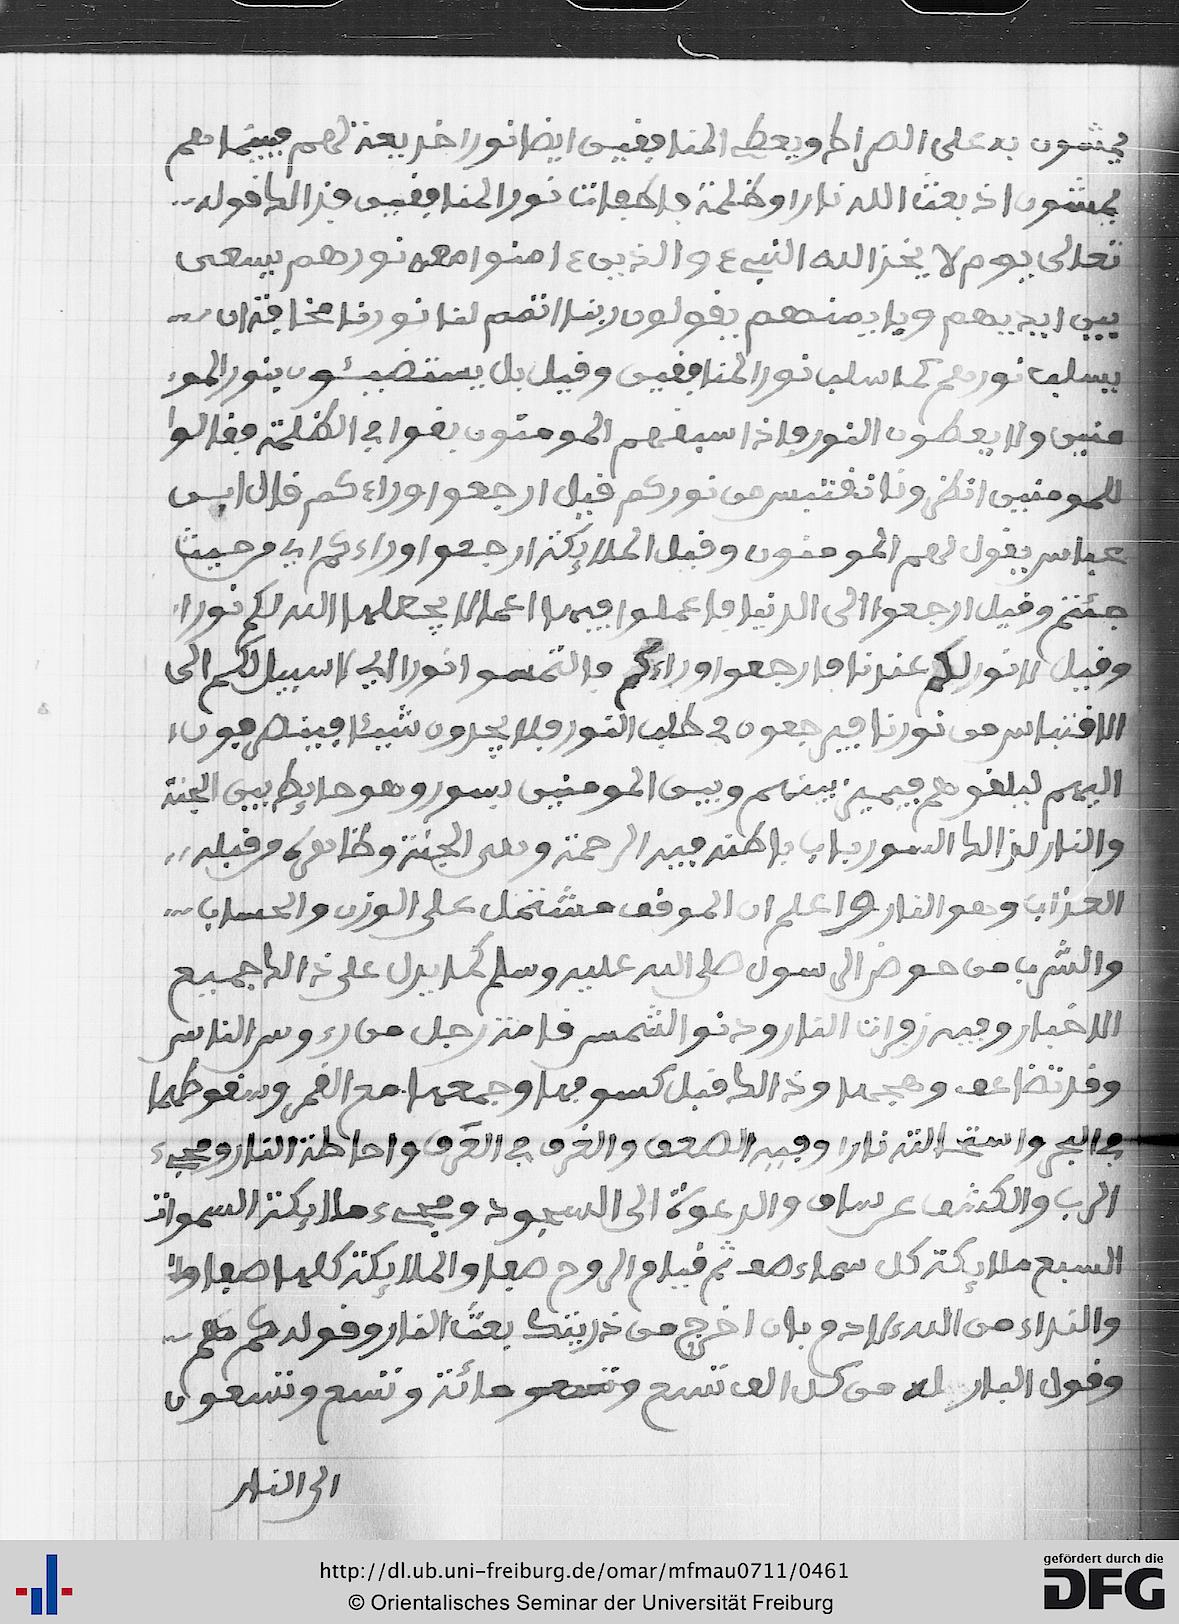 يمشون به على الصراط ويعطي المنافقين ايضا نورا خديعة لهم فبينما هم
يمشون اذ بعث الله نارا وظلمة فاطفات نور المنافقين فذالك قوله
تعالى يوم لا يخز الله النبيء والذين ءامنوا معه نورهم يسعى
بين ايديهم وبايمنهم يقولون ربنا اتمم لنا نورنا مخافة ان
يسلب نورهم كما سلب نور المنافقين وقيل بل يستضيئون بنور المو
منين ولا يعطون النور فاذا سبقهم المومنون بقوا في الظلمة فقالوا
للمومنين انظرونا نقتبس من نوركم قيل ارجعوا وراءكم قال ابن
عباس يقول لهم المومنون وقيل الملايكة ارجعوا وراءكم اي من حيث
جئتم وقيل ارجعوا الى الدنيا فاعملوا فيها اعمالا يجعلها الله لكم نورا
وقيل لا نور لكم عندنا فارجعوا وراءكم فالتمسوا نورا اي لا سبيل لكم الى
الاقتباس من نورنا فيرجعون في طلب النور فلا يجدون شيئا فينصرفون
اليهم ليلقوهم فيميز بينهم وبين المومنين بسور وهو حايط بين الجنة
والنار لذالك السور باب باطنه فيه الرحمة وهي الجنة وظاهره من قبله
العذاب وهو النار واعلم ان الموقف مشتمل على الوزن والحساب
والشرب من حوض الرسول صلى الله عليه وسلم كما يدل على ذالك جميع
الاخبار وفيه زفرات النار ودنو الشمس قامة رجل من رءوس الناس
وقد تضاعف وهجها وذالك قبل كسوفها وجمعها مع القمر وسقوطهما
في البحر واستحالته نارا وفيه الصعق والغرق في العرق واحاطة النار ومجيء
الرب والكشف عن ساق والدعوة الى السجود ومجيء ملايكة السموات
السبع ملايكة كل سماء صف ثم قيام الروح صفا والملايكة كلها صفا
والنداء من الله لاءدم بان اخرج من ذريتك بعث النار وقوله كم هم
وقول البار له من كل الف تسع وتسعو مائة وتسع وتسعون
الى النار
http://dl.ub.uni-freiburg.de/omar/mfmau0711/0461
© Orientalisches Seminar der Universität Freiburg
gefördert durch die
DFG